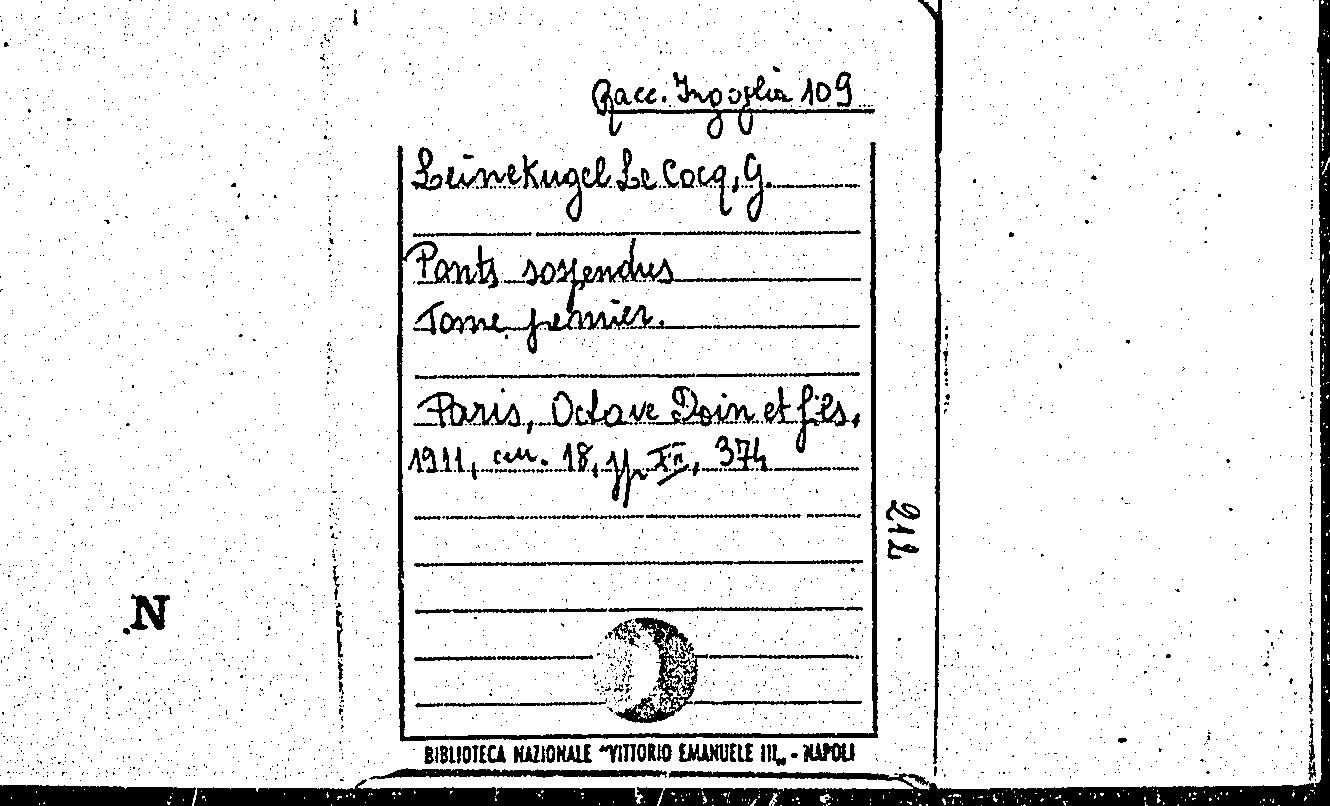 Racc. Ingoglia 109
Leinekugel Le Cocq, G.
Ponts sospendus
Tome premier.
Paris, Octave Doin et fils,
1911, cm. 18, pp. XII, 374
212
N
BIBLIOTECA NAZIONALE "VITTORIO EMANUELE III„ - NAPOLI